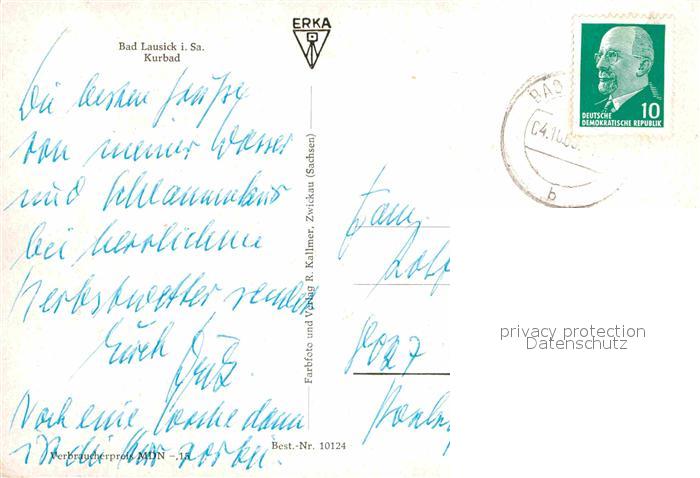 Bad Lausick i. Sa.
Kurbad
ERKA
Die besten Grüße
von meiner Wasser
und Schlammkur
bei herrlichem
Herbstwetter sendet
Euch
Noch eine Woche dann
ist die Kur vorbei.
Verbraucherpreis MDN -,15
Best.-Nr. 10124
Farbfoto und Verlag R. Kallmer, Zwickau (Sachsen)
BAD
04.10.
b
10
DEUTSCHE
DEMOKRATISCHE REPUBLIK
Fam.
privacy protection
Datenschutz